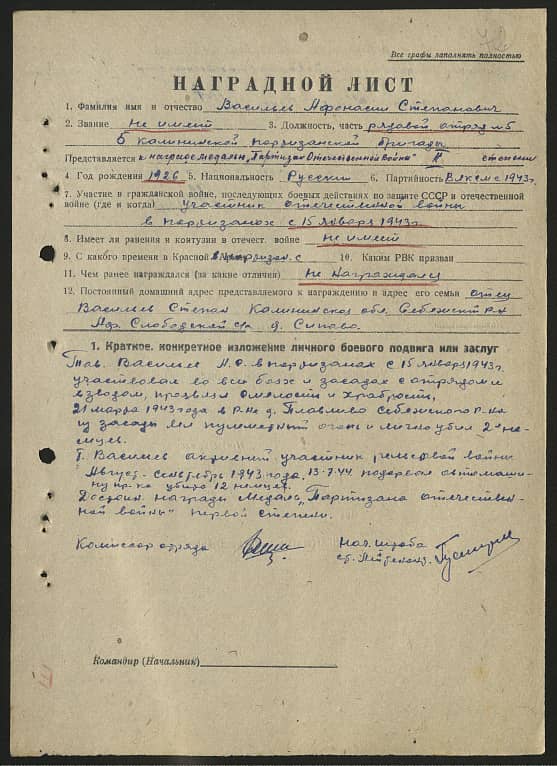 Все графы заполнять полностью
НАГРАДНОЙ ЛИСТ
1. Фамилия имя и отчество Васильев Афонасий Степанович
2. Звание не имеет 3. Должность, часть рядовой, отряд №5
5 калининской партизанской бригады
Представляется к награде медалью "Партизан Отечественной Войны" степени
4. Год рождения 1926 5. Национальность Русский 6. Партийность ВЛКСМ с 1943г.
7. Участие в гражданской войне, последующих боевых действиях по защите СССР и отечественной
войне (где и когда) участник отечественной войны
в партизанах с 15 января 1943г.
8. Имеет ли ранения и контузии в отечест. войне не имеет
9. С какого времени в Красной в партизан. с 10. Каким РВК призван
11. Чем ранее награждался (за какие отличия) Не награждался
12. Постоянный домашний адрес представляемого к награждению и адрес его семьи отец
Васильев Степан Калининская обл. Себежский р-н
Слободской с/с д.
1. Краткое, конкретное изложение личного боевого подвига или заслуг
Тов. Васильев А.С. в партизанах с 15 января 1943г.
участвовал во всех боях и засадах с отрядом и
взводом, проявлял смелость и храбрость,
21 марта 1943 года в р-не д. Себежского р-на
из засады вел пулеметный огонь и лично убил 2х не-
мцев.
Т. Васильев активный участник рельсовой войны
Август-сентябрь 1943 года. 13.7.44 подорвал автомаши-
ну пр-ка убито 12 немцев.
Достоин награды Медаль "Партизана отечествен-
ной войны" первой степени.
Комиссар отряда Нач. штаба
ст. лейтенант
Командир (Начальник)